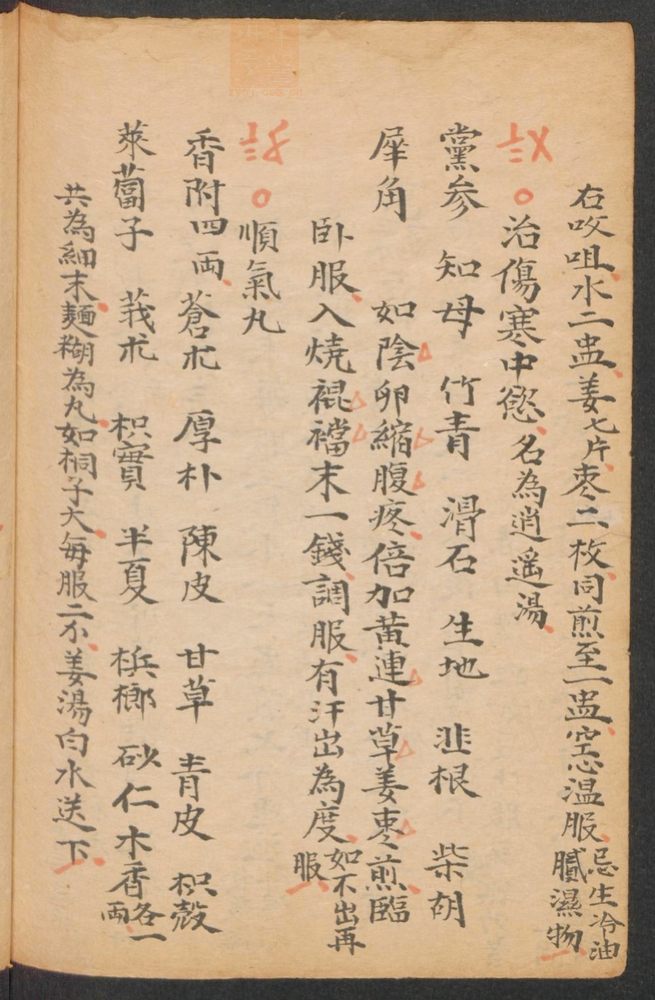 右㕮咀水二盅姜七片枣二枚同煎至一盅空心温服忌生冷油膩濕物
治傷寒中慾名為逍遥湯
黨参 知母 竹青 滑石 生地 韭根 柴胡
犀角 如陰卵縮腹疼倍加黄連甘草姜枣煎臨
卧服入燒裩襠末一錢調服有汗出為度如不出再服
順氣丸
香附四両 蒼朮 厚朴 陳皮 甘草 青皮 枳殻
萊菔子 莪朮 枳實 半夏 梹榔 砂仁 木香各一両
共為細末麺糊為丸如桐子大每服二个姜湯白水送下